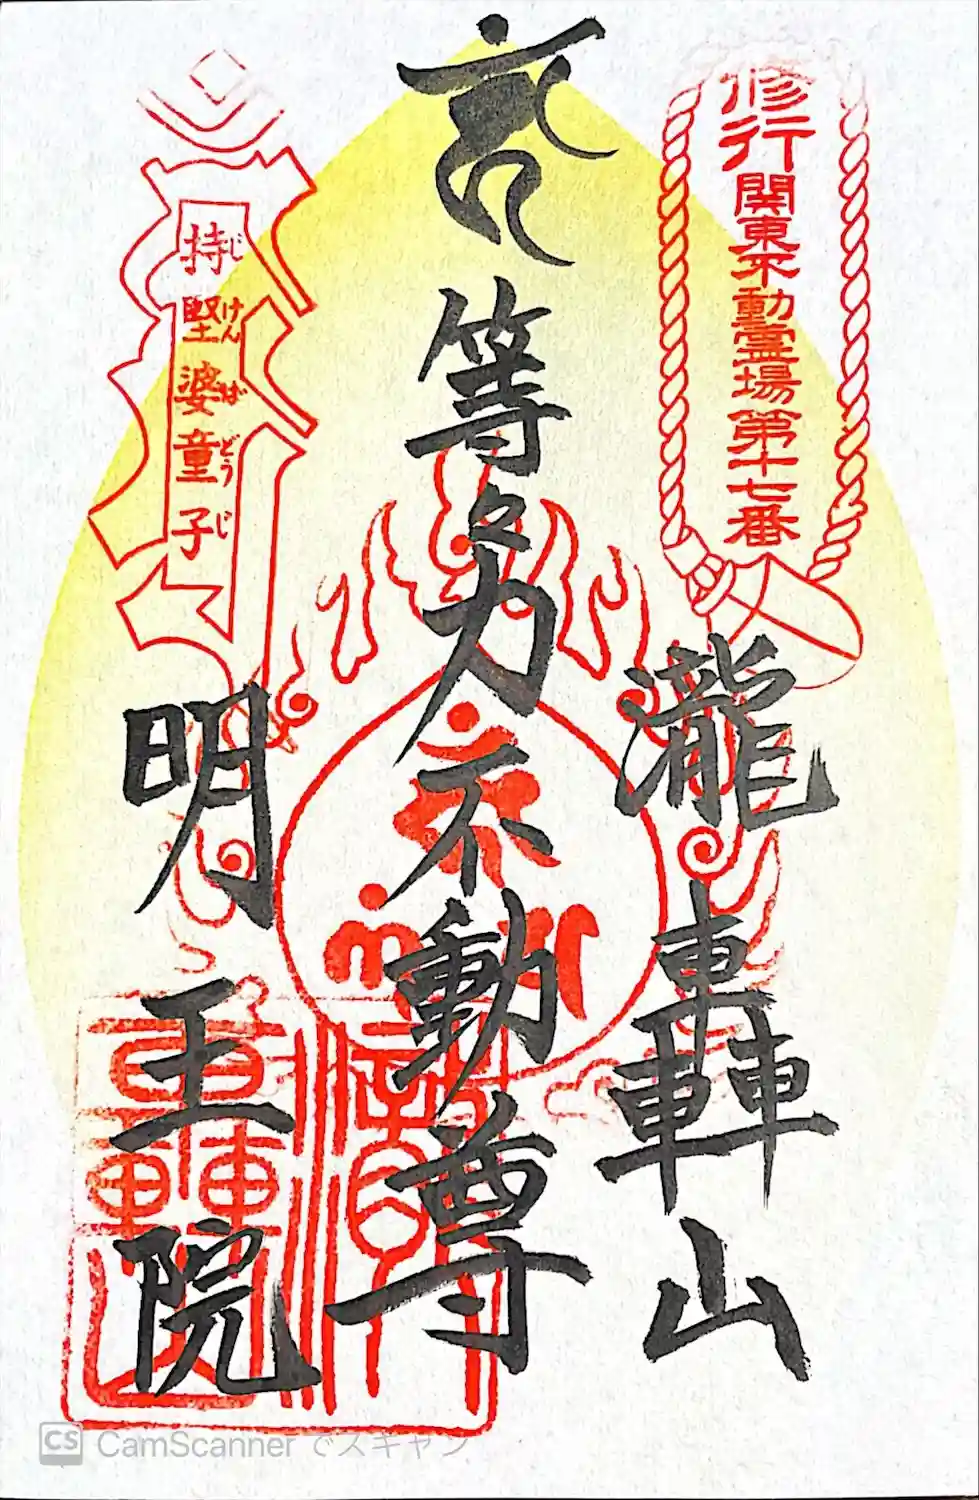 修行
関東不動霊場第十七番
瀧轟山
等々力不動尊
持堅婆童子
じけんばどうじ
明王院
CS CamScanner でスキャン